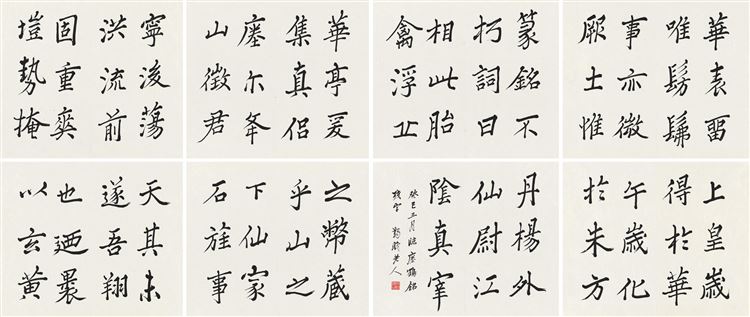 華表留
唯髣髴
事亦微
厥土惟
篆銘不
朽詞曰
相此胎
禽浮丘
華亭爰
集真侶
瘞尔夅
山徵君
寧後蕩
洪流前
固重爽
塏勢掩
上皇歲
得於華
午歲化
於朱方
丹楊外
仙尉江
陰真宰
癸巳三月臨瘞鶴銘
殘字 老人
之幣藏
乎山之
下仙家
石旌事
天其未
遂吾翔
也廼裹
以玄黃